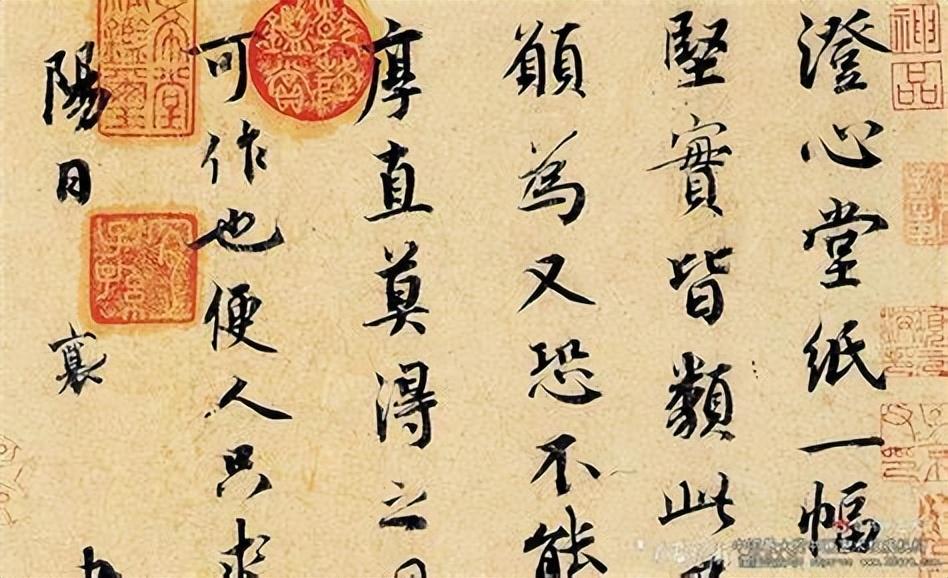 澄心堂紙一幅
堅實皆類此
願為又恐不能
厚直莫得之
可作也便人只求
陽日 襄
神品